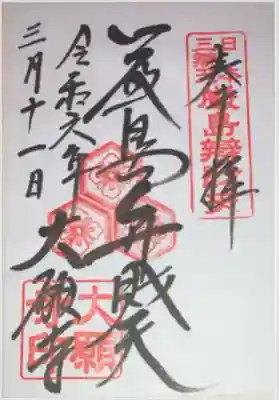 奉拝
嚴島辨財天
厳島弁財天
大願寺
令和六年
三月十一日
大願
寺印